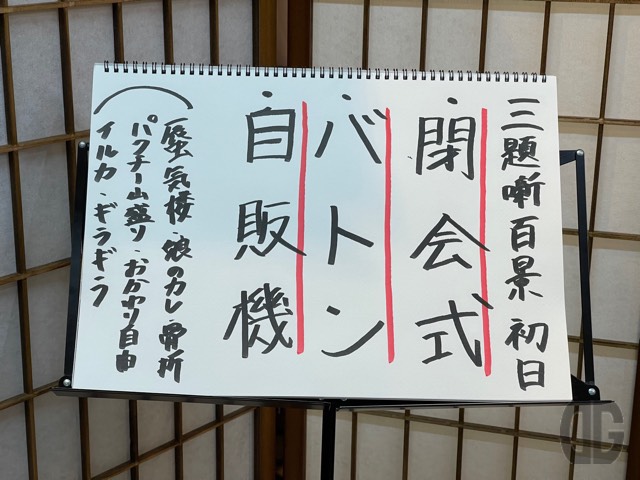 三題噺百景 初日
・閉会式
・バトン
・自販機
(蜃気楼・娘のカレ・需所
パクチー山盛り・おかわり自由
イルカ・ギラギラ
DG